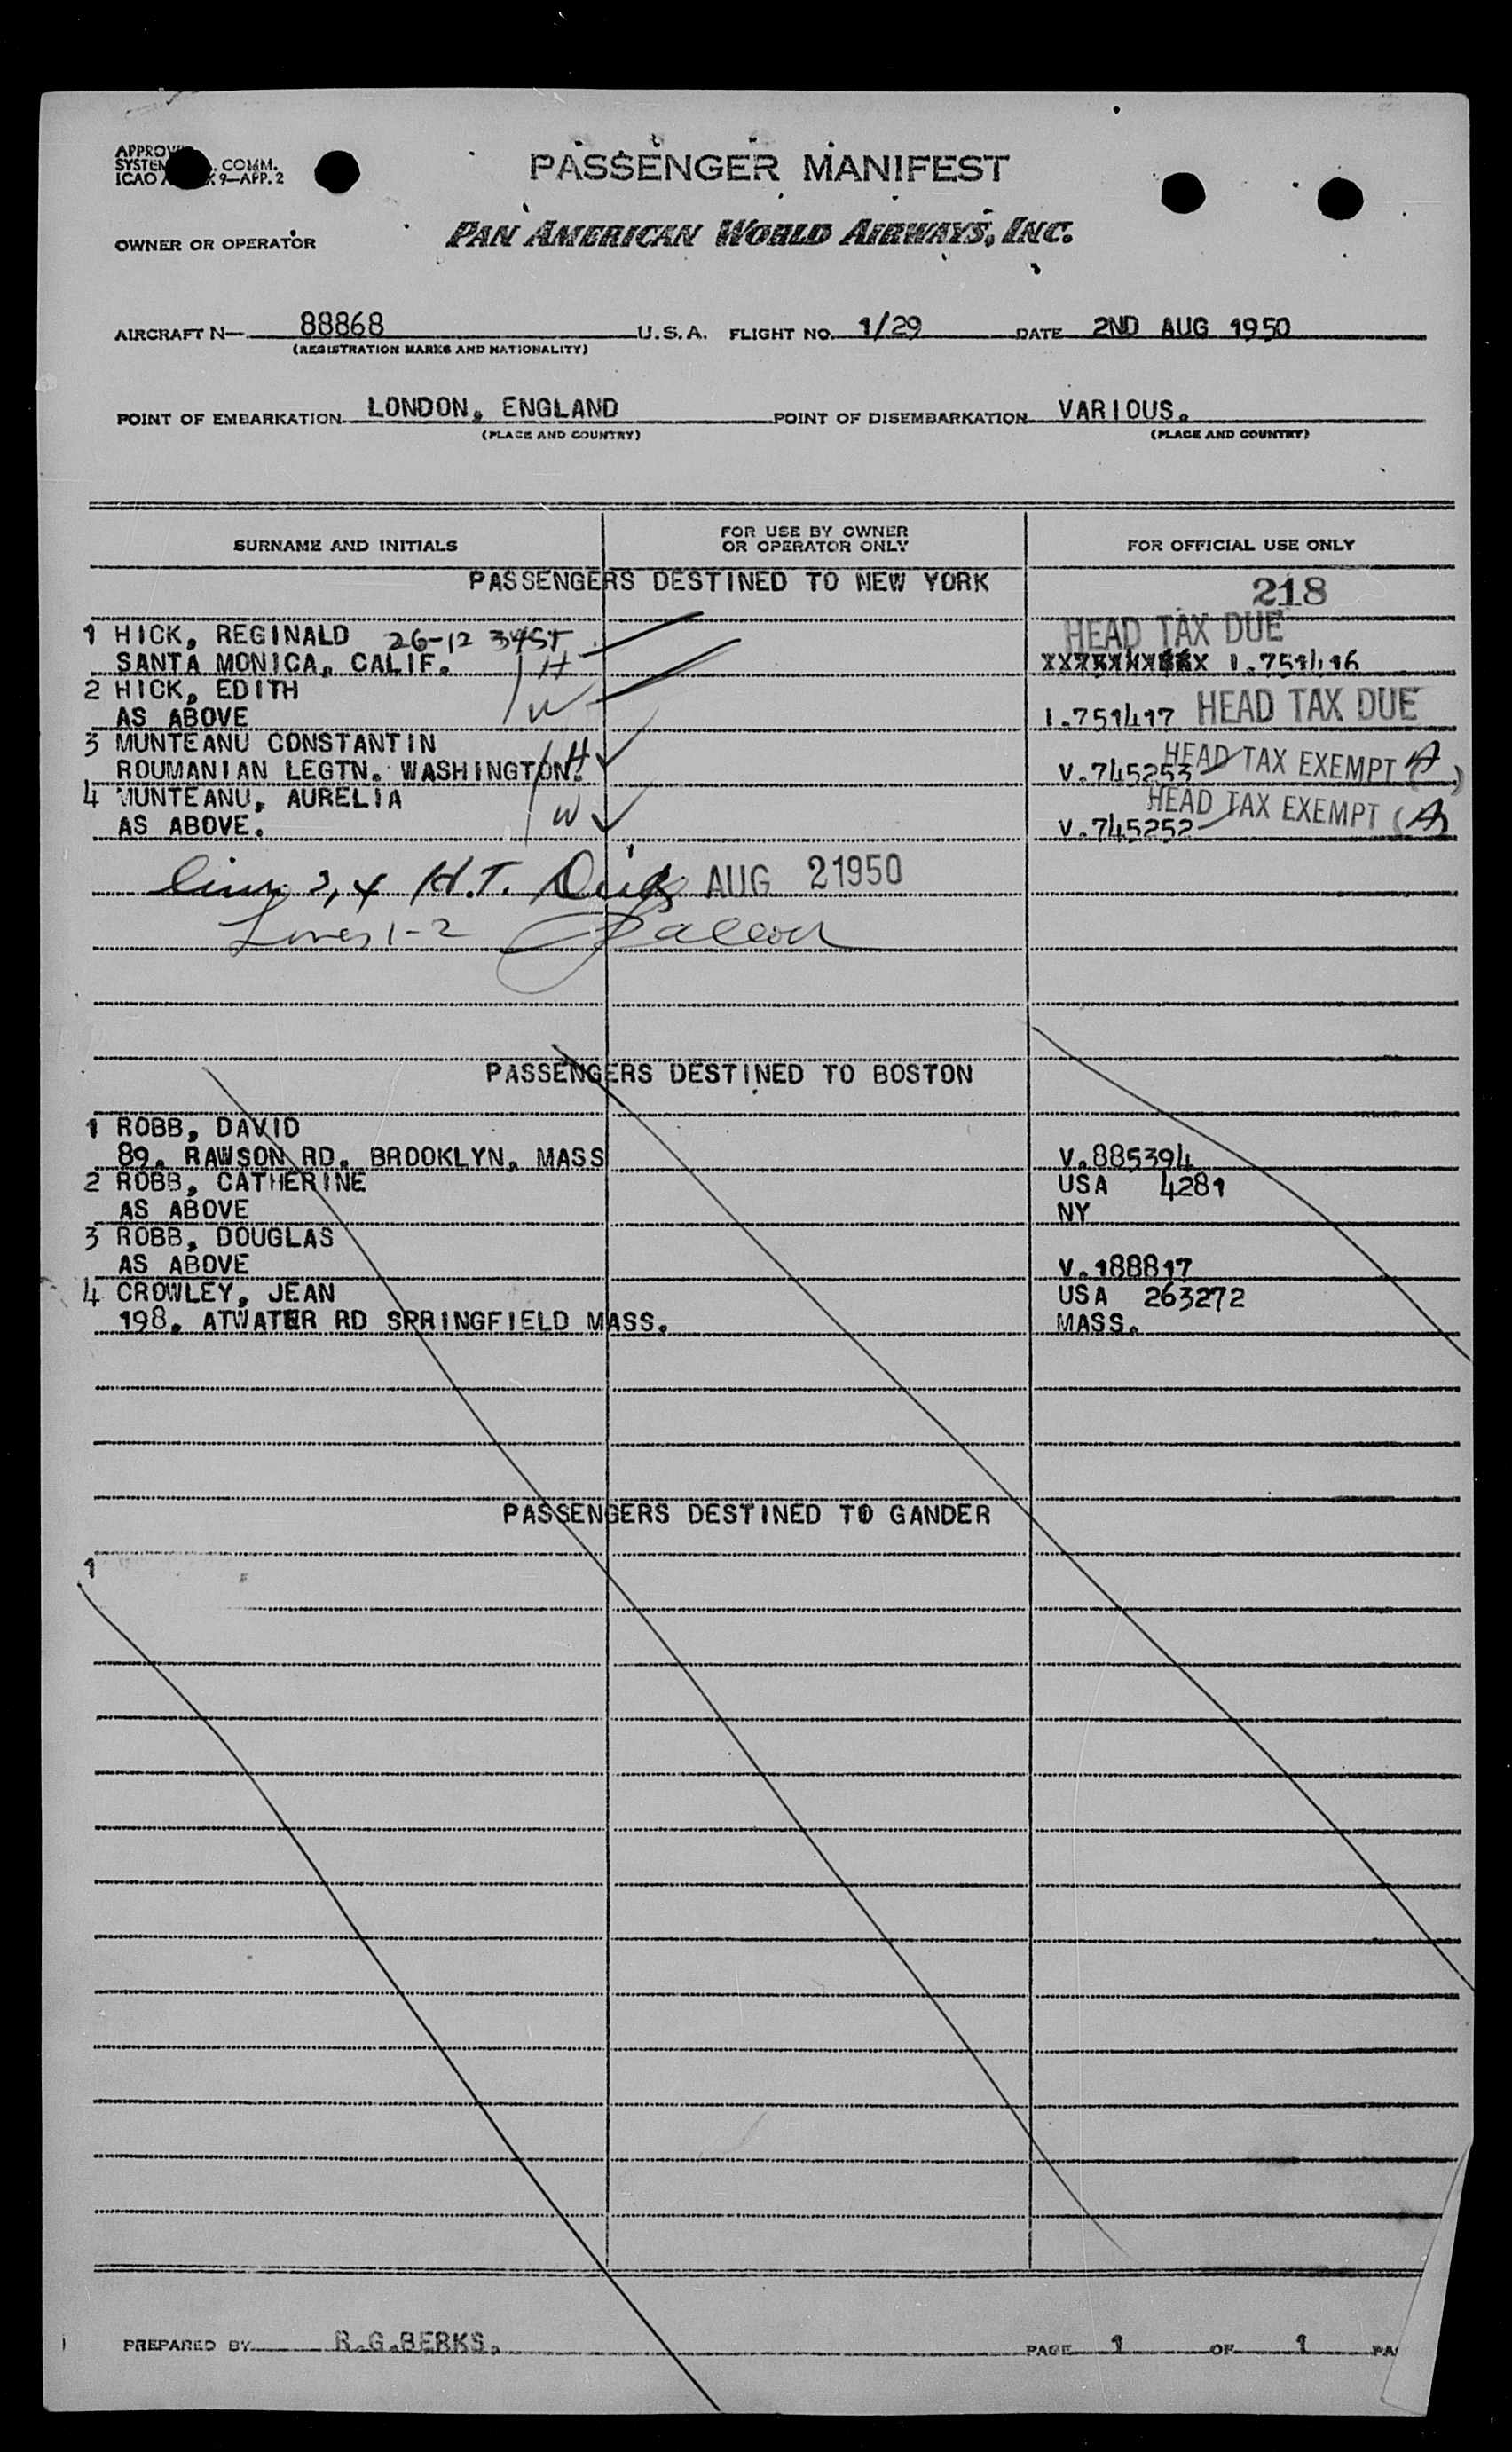 PASSENGER MANIFEST
COMM.
9—APP. 2
OWNER OR OPERATOR PAN AMERICAN WORLD AIRWAYS, INC.
AIRCRAFT N— 88868 U.S.A. FLIGHT NO. 1/29 DATE 2ND AUG 1950
(REGISTRATION MARKS AND NATIONALITY)
POINT OF EMBARKATION LONDON, ENGLAND POINT OF DISEMBARKATION VARIOUS.
(PLACE AND COUNTRY) (PLACE AND COUNTRY)
SURNAME AND INITIALS FOR USE BY OWNER OR OPERATOR ONLY FOR OFFICIAL USE ONLY
PASSENGERS DESTINED TO NEW YORK 218
1 HICK, REGINALD 26-12 34ST HEAD TAX DUE
SANTA MONICA, CALIF. H 1.751416
2 HICK, EDITH
AS ABOVE W 1.751417 HEAD TAX DUE
3 MUNTEANU CONSTANTIN
ROUMANIAN LEGTN. WASHINGTON. H V.745253 HEAD TAX EXEMPT (A)
4 MUNTEANU, AURELIA
AS ABOVE. W V.745252 HEAD TAX EXEMPT (A)
3, 4 H.T. AUG 21950
Lines 1-2
PASSENGERS DESTINED TO BOSTON
1 ROBB, DAVID
89, RAWSON RD. BROOKLYN, MASS V.885394
2 ROBB, CATHERINE USA 4281
AS ABOVE NY
3 ROBB, DOUGLAS
AS ABOVE V.188817
4 CROWLEY, JEAN USA 263272
198, ATWATER RD SPRINGFIELD MASS. MASS.
PASSENGERS DESTINED TO GANDER
1
PREPARED BY R.G.BERKS. PAGE 1 OF 1